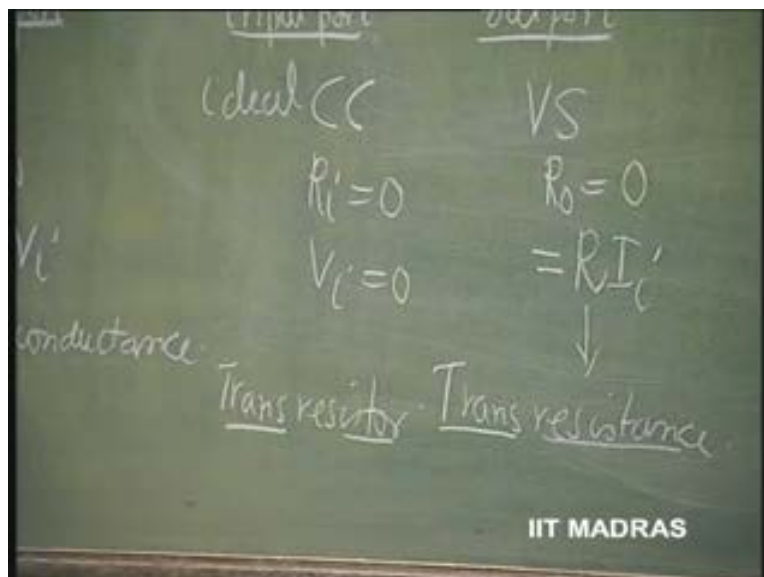 Input port Output
ideal CC VS
Ri = 0 Ro = 0
Vi Vi = 0 = RIi
↓
conductance. Transresistor. Transresistance.
IIT MADRAS